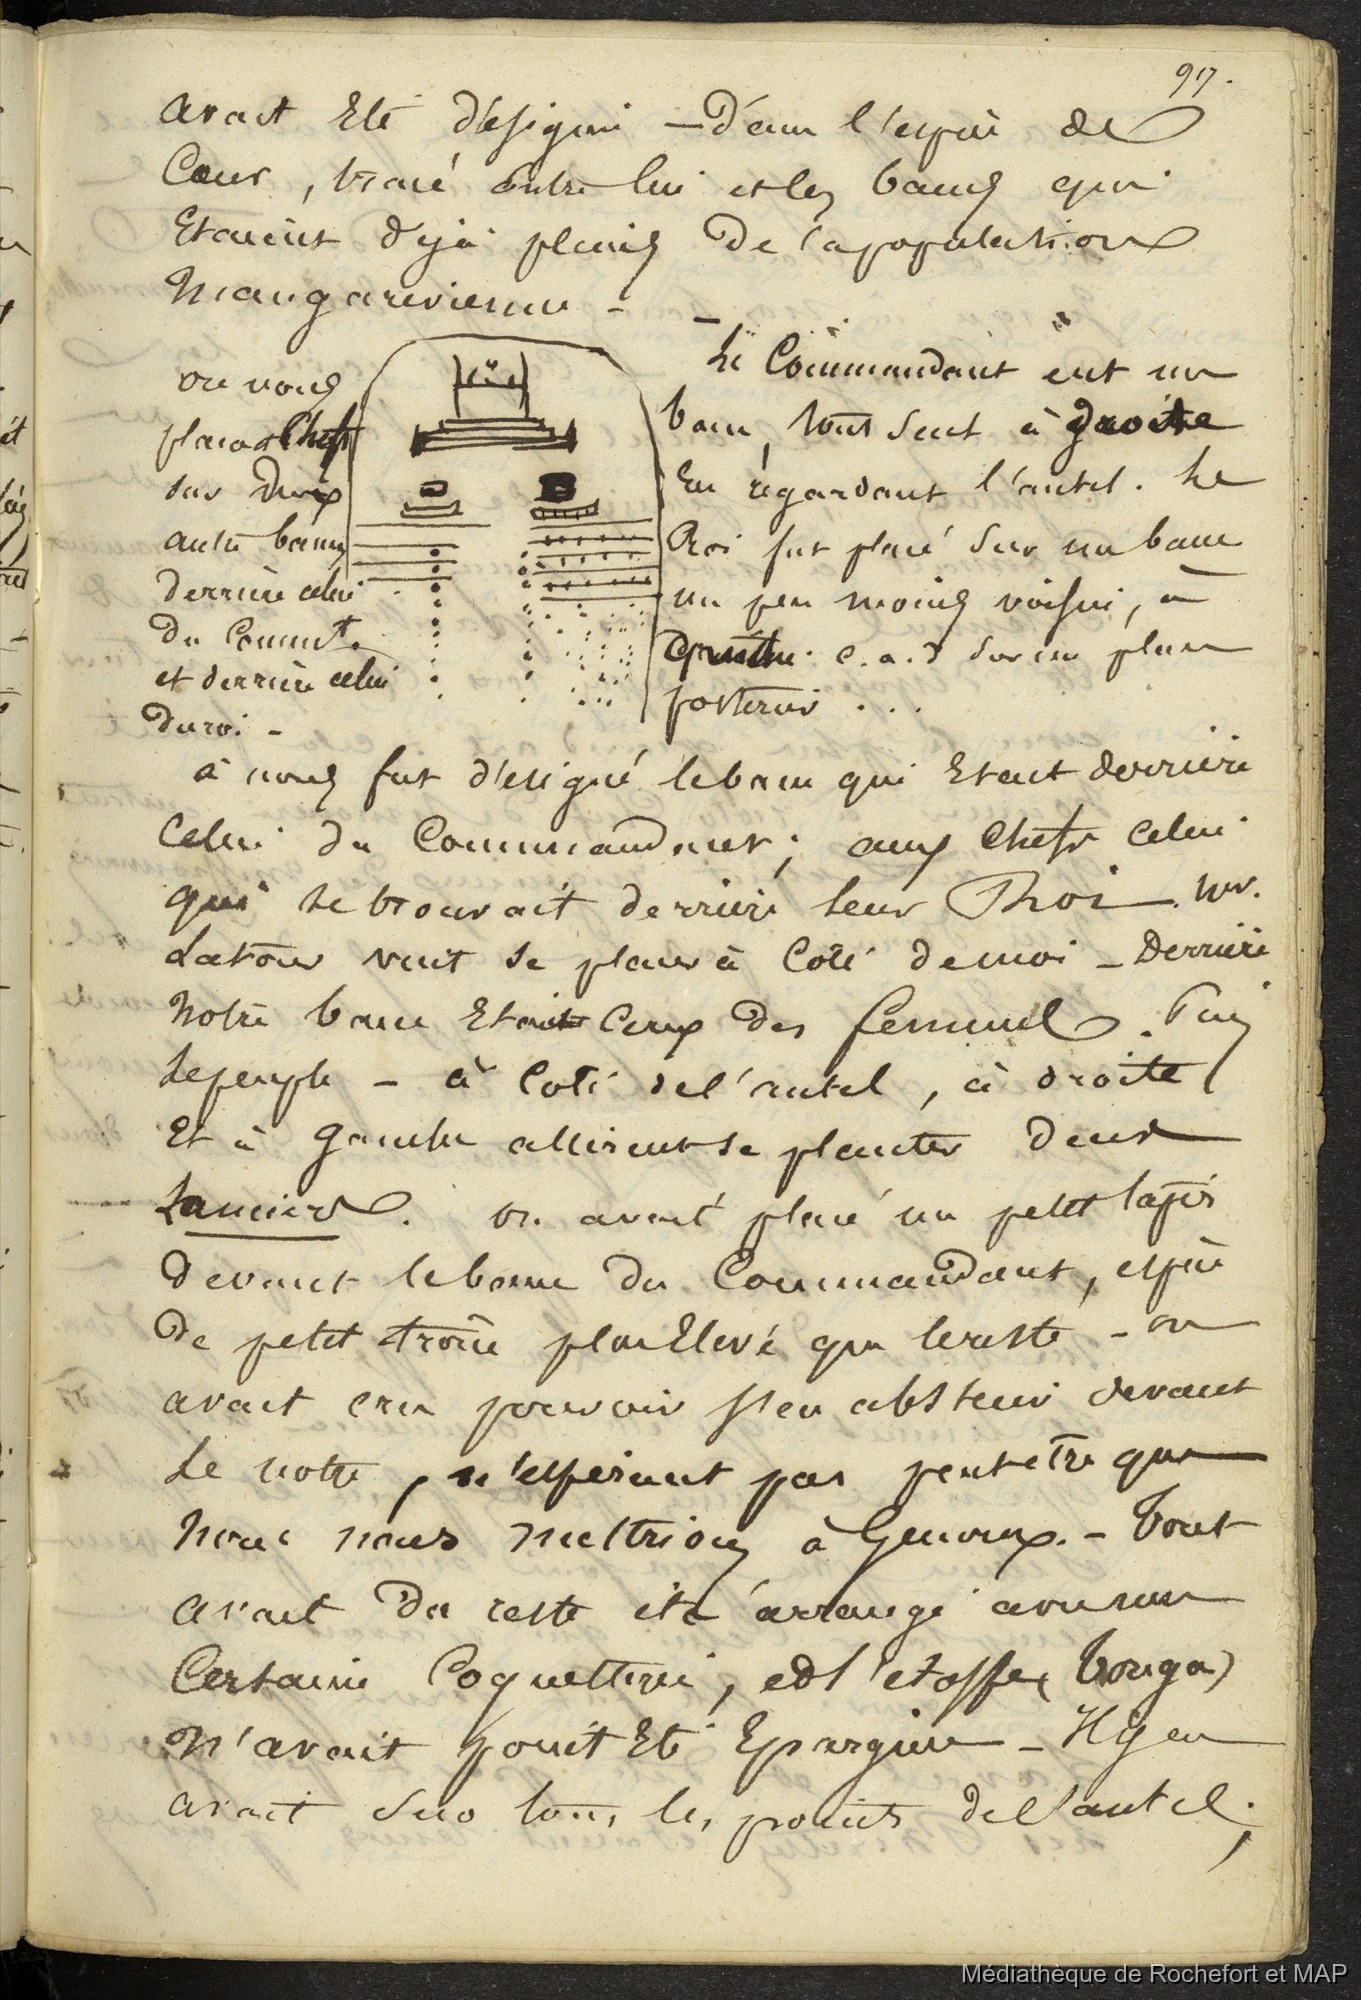 917.
avait Eté désigné – Dans l'espèce de
Cour, tracé Entre lui et les bancs qui
Etaient déjà pleins De la population
Mangarévienne –
on nous
plaça et Chefs
sur Deux
autre bancs
derrière celui
Du Commt.
et derrière celui
du roi –
– Le Commandant eut un
banc, tout seul à droite
En regardant l'autel. Le
Roi fut placé Sur un banc
un peu moins voisin, à
gauche c.a.d sur un plan
postérieur ...
à nous fut désigné le banc qui Etait derrière
Celui du Commandant ; aux Chefs Celui
qui se trouvait derrière leur Roi – Mr.
Latour vint se placer à Coté de moi – Derrière
Notre banc Etait Ceux Des femmes. Puis
le peuple – à Coté de l'autel, à droite
Et à gauche allèrent se planter Deux
Lanciers. on avait placé un petit tapis
Devant le banc Du Commandant, espèce
De petit trône plus Elevé que le reste – on
avait cru pouvoir s'en abstenir devant
Le notre, n'espérant pas peut etre que
Nous nous mettrions à Genoux. – Tout
avait Du reste été arrangé avec une
Certaine Coquetterie, et l'etoffe (touga)
N'avait point Eté Epargnée – Il y en
avait sur tous les points de l'autel ;
Médiathèque de Rochefort et MAP